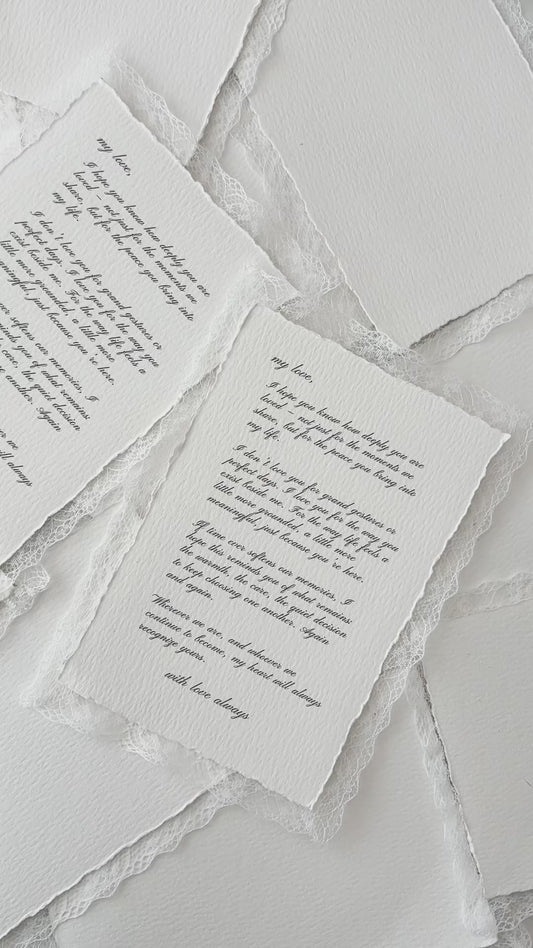 my love,
I hope you know how deeply you are
loved – not just for the moments we
share, but for the peace you bring into
my life.
I don't love you for grand gestures or
perfect days. I love you for the way you
exist beside me. For the way life feels a
little more grounded, a little more
meaningful, just because you're here.
ver softens our memories, I
minds you of what remains:
care, the quiet decision
ne another. Again
we
will always
my love,
I hope you know how deeply you are
loved – not just for the moments we
share, but for the peace you bring into
my life.
I don't love you for grand gestures or
perfect days. I love you for the way you
exist beside me. For the way life feels a
little more grounded, a little more
meaningful, just because you're here.
If time ever softens our memories, I
hope this reminds you of what remains:
the warmth, the care, the quiet decision
to keep choosing one another. Again
and again.
Wherever we are, and whoever we
continue to become, my heart will always
recognize yours.
with love always